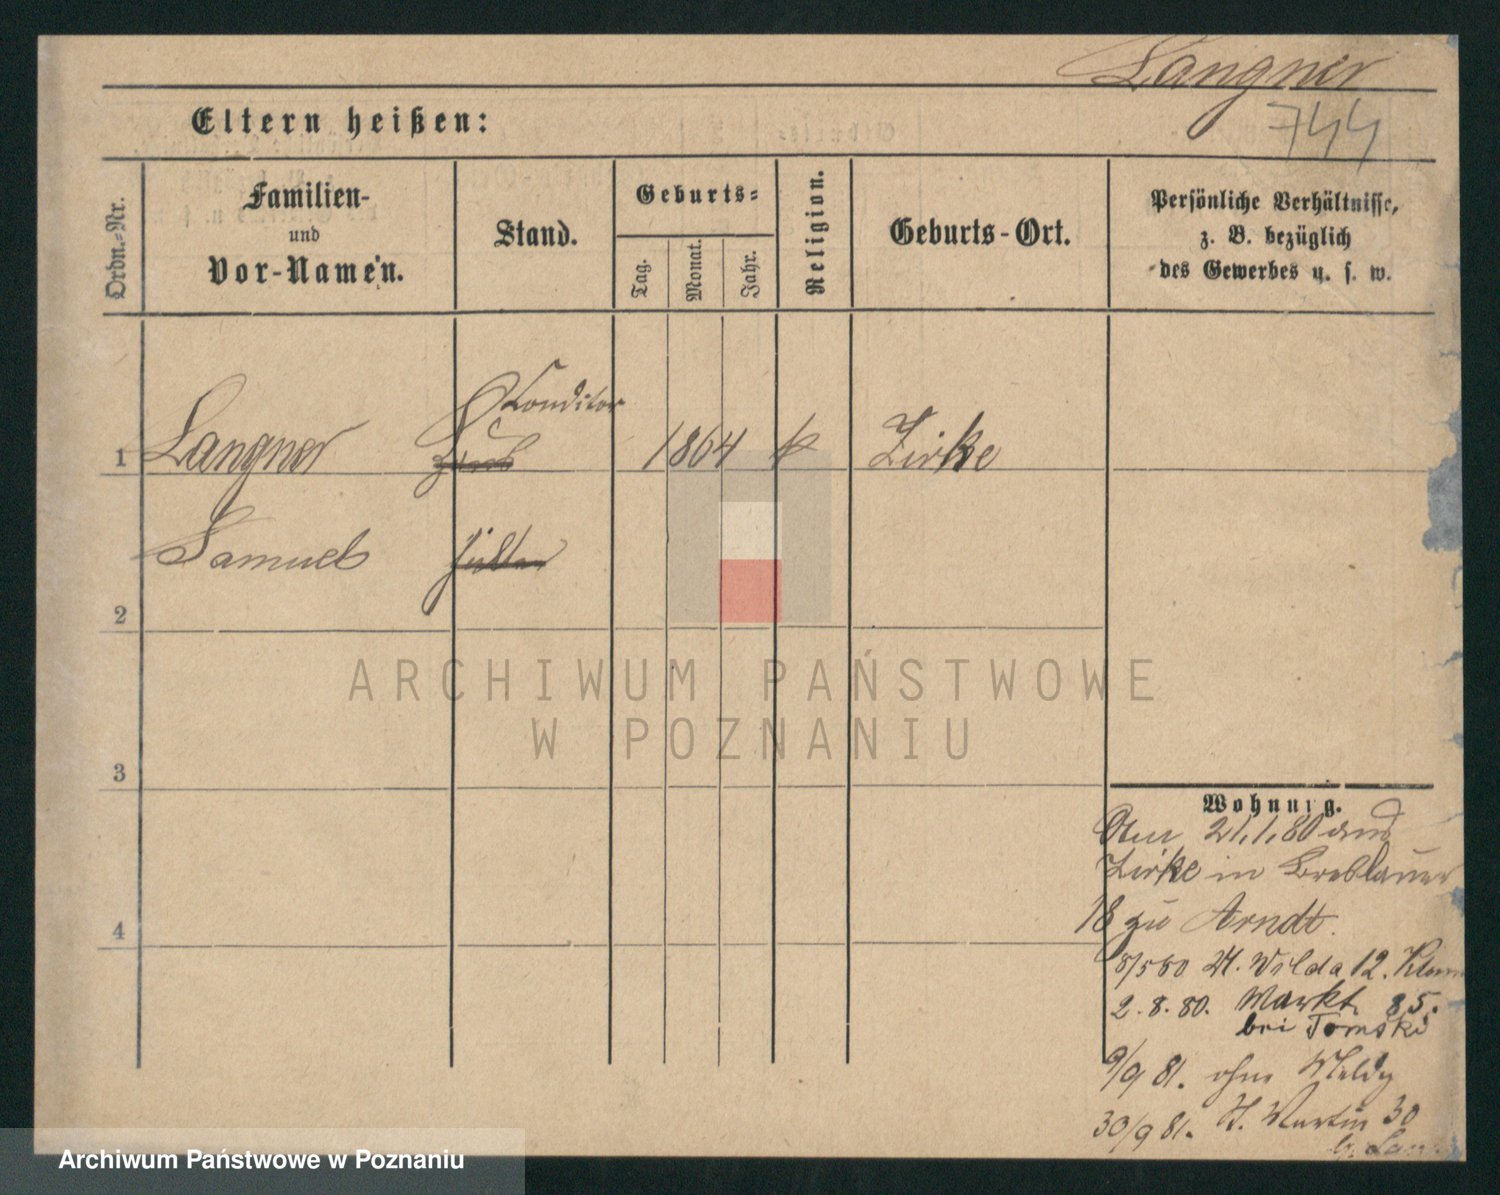 Langner
744
Eltern heißen:
Ordn.-Nr.
Familien-
und
Vor-Namen.
Stand.
Geburts-
Tag.
Monat.
Jahr.
Religion.
Geburts-Ort.
Persönliche Verhältnisse,
z. B. bezüglich
des Gewerbes u. s. w.
Conditor
1 Langner 1864 k Zirke
Samuel
2
3
4
ARCHIWUM PAŃSTWOWE
W POZNANIU
Wohnung.
21.1.80 aus
Zirke in Breslauer
18 zu Arndt.
8/5 80 St. Wilda 12.
2.8.80. Markt 85.
bei Tomski
9/9 81. ohne Meldg
30/9 81. St. Martin 30
b.
Archiwum Państwowe w Poznaniu